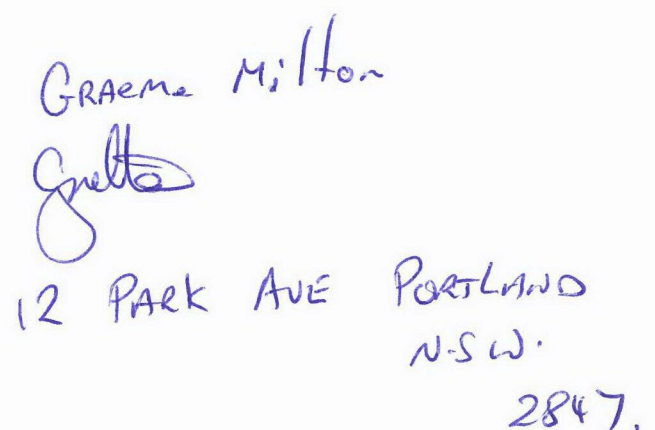 GRAEME Milton
12 PARK AVE PORTLAND
N.S.W.
2847.